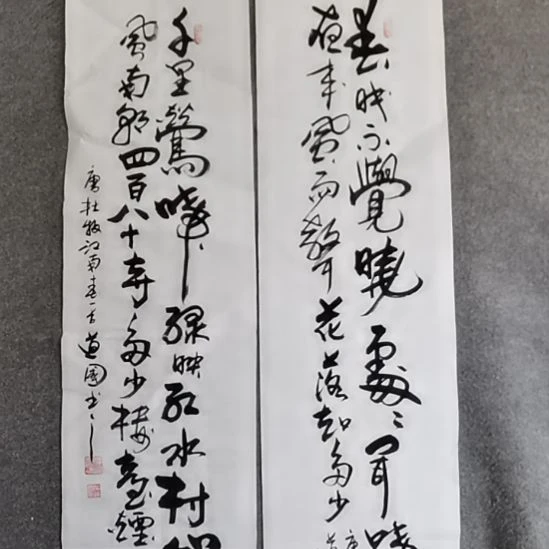 春眠不覺曉處々聞啼
夜来風雨聲花落知多少
千里鶯啼緑映紅水村
風南朝四百八十寺多少樓臺煙
唐杜牧江南春一首道國書